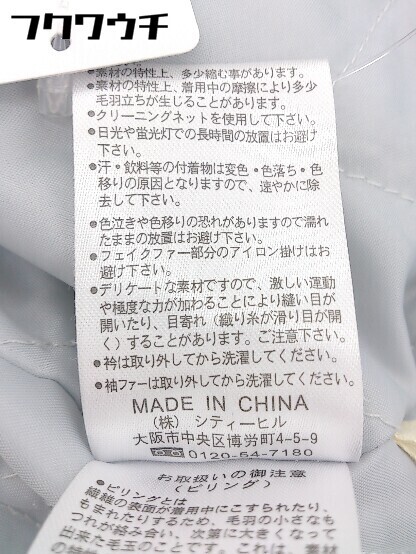 フクウウチ
●素材の特性上、多少縮む事があります。
●素材の特性上、着用中の摩擦により多少
毛羽立ちが生じることがあります。
●クリーニングネットを使用して下さい。
●日光や蛍光灯での長時間の放置はお避け
下さい。
●汗・飲料等の付着物は変色・色落ち・色
移りの原因となりますので、速やかに除
去して下さい。
●色泣きや色移りの恐れがありますので濡れ
たままの放置はお避け下さい。
●フェイクファー部分のアイロン掛けはお
避け下さい。
●デリケートな素材ですので、激しい運動
や極度な力が加わることにより縫い目が
開いたり、目寄れ（織り糸が滑り目が開
く）することがあります。ご注意下さい。
●衿は取り外してから洗濯してください。
●袖ファーは取り外してから洗濯してください。
MADE IN CHINA
（株）シティーヒル
大阪市中央区博労町4-5-9
0120-54-7180
お取扱いの御注意
（ピリング）
●ピリングとは
繊維の表面が着用中にこすられたり、
もまれたりするため、毛羽の小さなも
つれが絡み合い、次第に大きくなって
出来た毛玉のことです。これは、